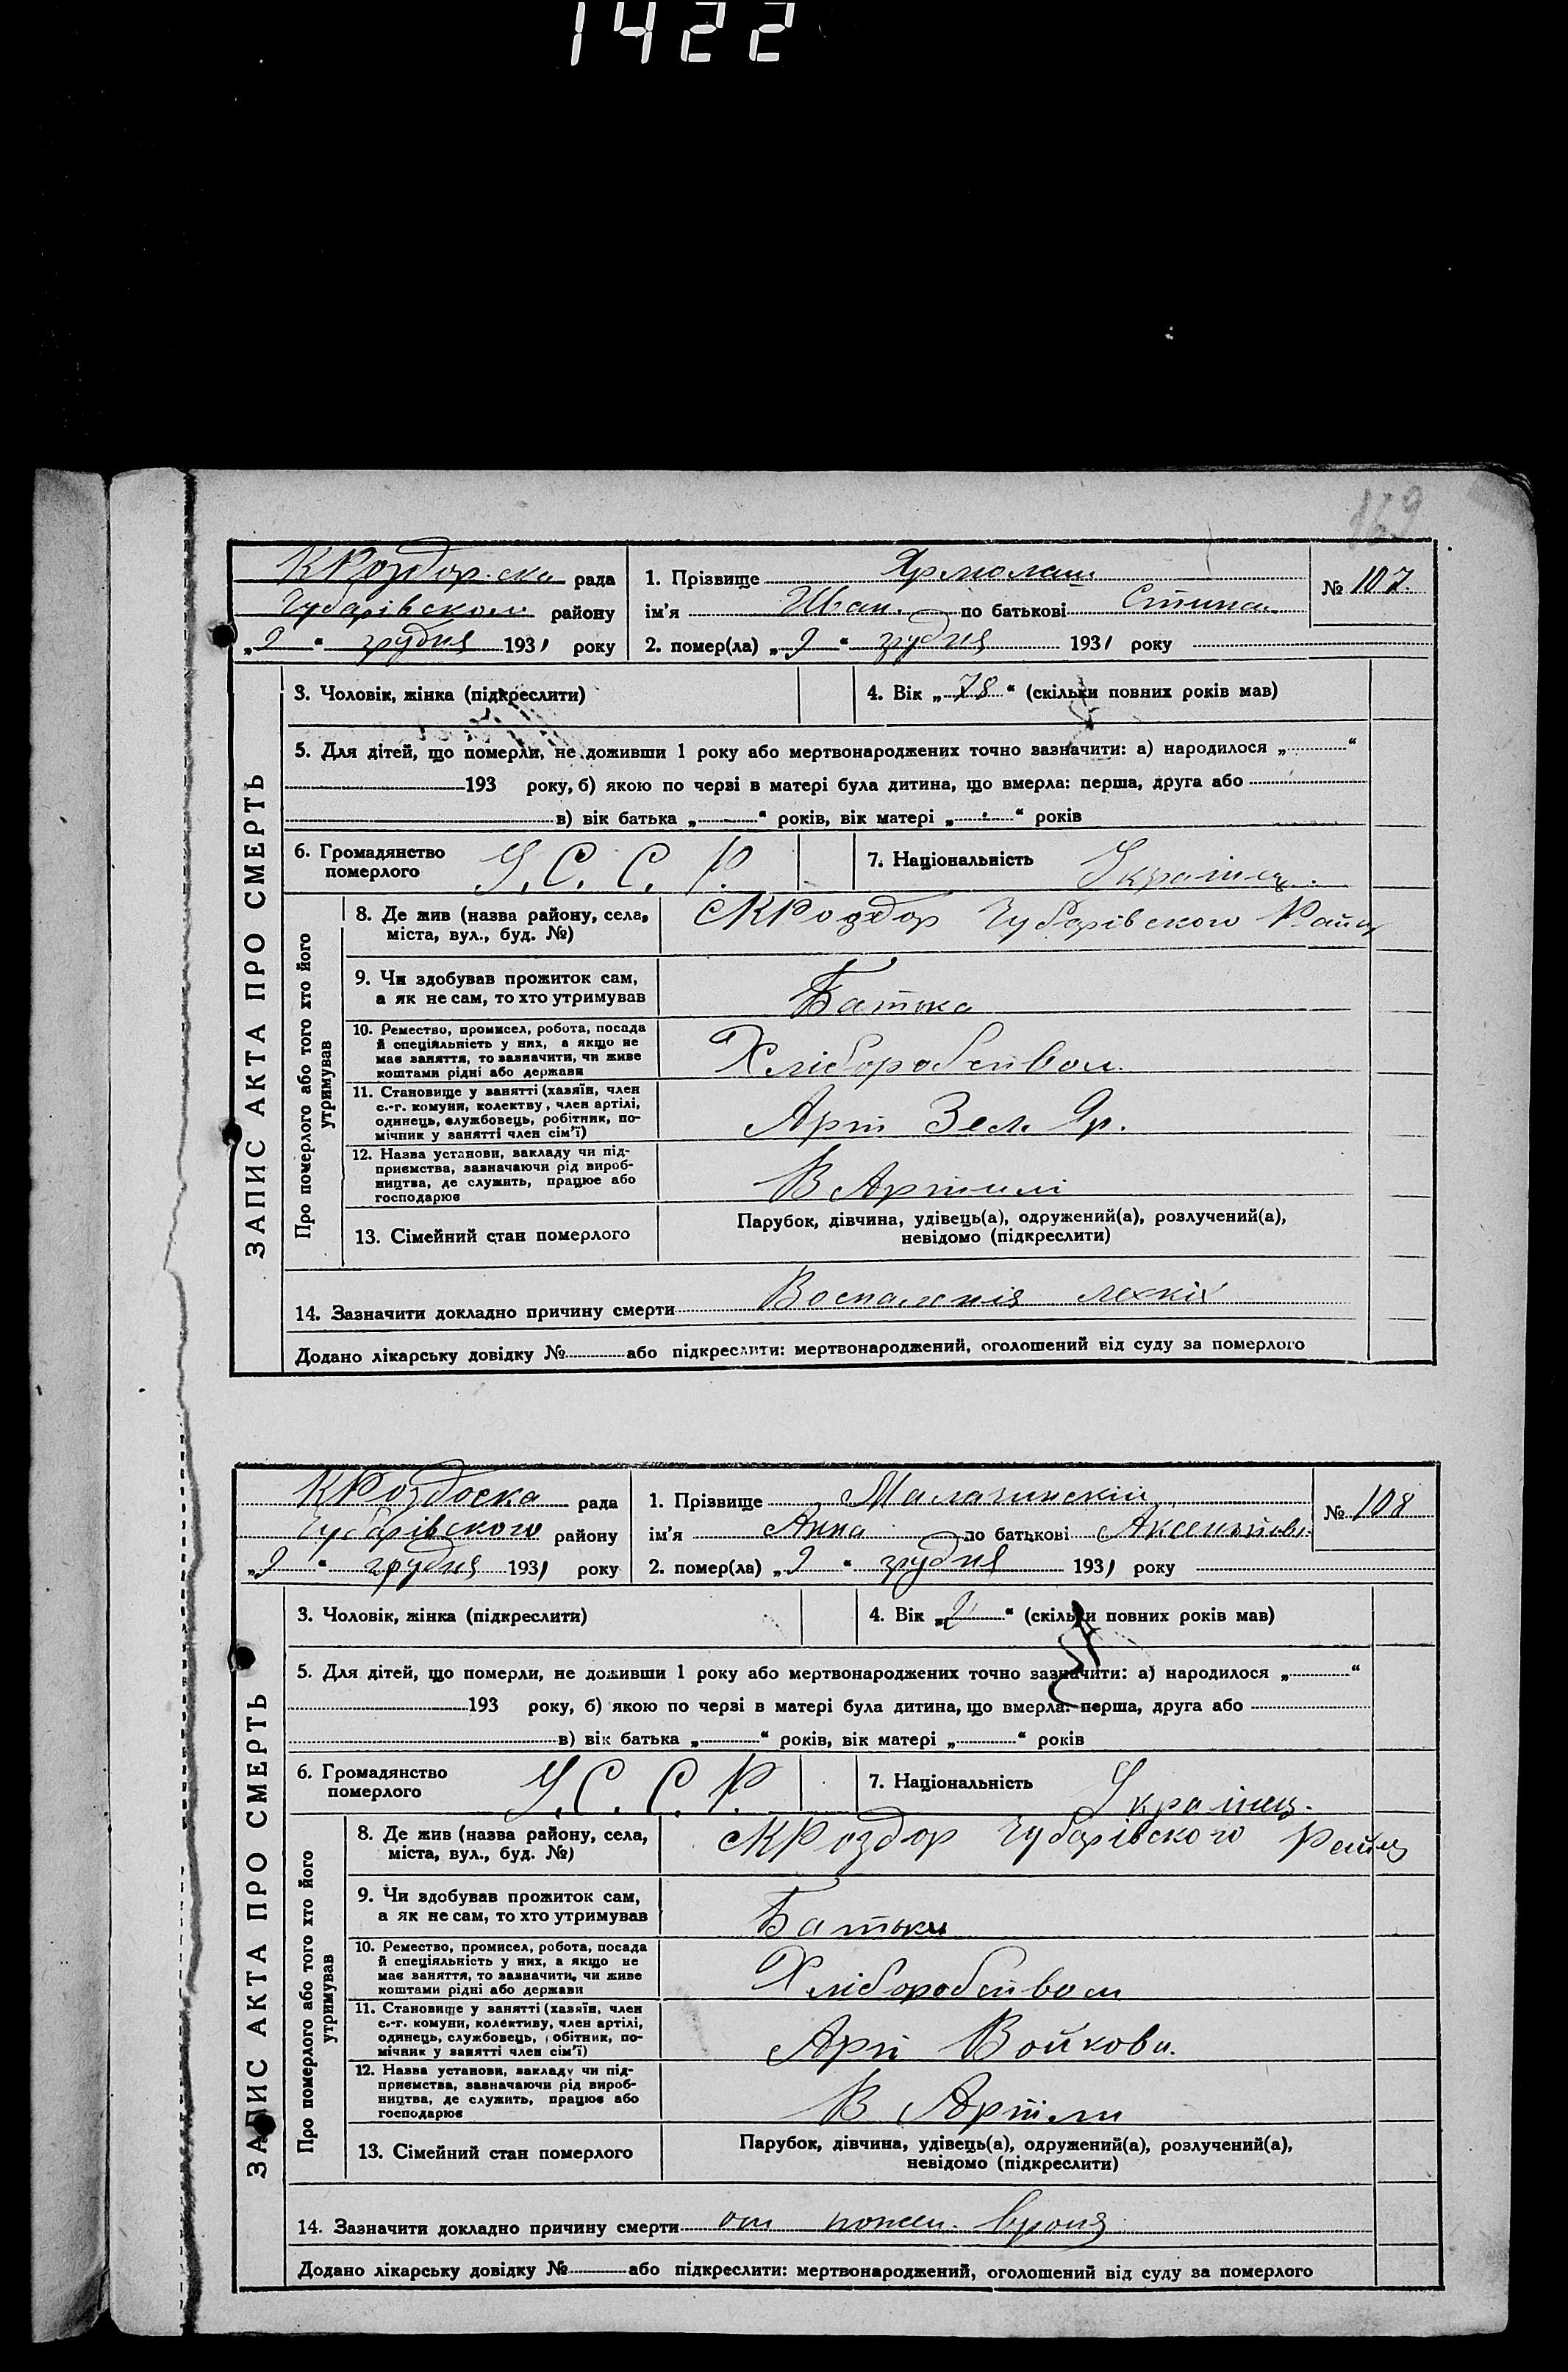 1422
169
КРоздорска рада
Чубарівском району
„9“ грудня 1931 року
1. Прізвище Ярмолаш
ім'я Иван. по батькові Степан
№ 107.
2. помер(ла) „9“ грудня 1931 року
ЗАПИС АКТА ПРО СМЕРТЬ
3. Чоловік, жінка (підкреслити)
4. Вік „78“ (скільки повних років мав)
5. Для дітей, що померли, не доживши 1 року або мертвонароджених точно зазначити: а) народилося „ “
193 року, б) якою по черзі в матері була дитина, що вмерла: перша, друга або
в) вік батька „ “ років, вік матері „ “ років
6. Громадянство
померлого У.С.С.Р.
7. Національність Українец.
Про померлого або того хто його
утримував
8. Де жив (назва району, села,
міста, вул., буд. №)
сКРоздор Чубарівского Району
9. Чи здобував прожиток сам,
а як не сам, то хто утримував
Батько
10. Ремество, промисел, робота, посада
й спеціяльність у них, а якщо не
має заняття, то зазначити, чи живе
коштами рідні або держави
Хліборобством.
11. Становище у занятті (хазяїн, член
с.-г. комуни, колектву, член артілі,
одинець, службовець, робітник, по-
мічник у занятті член сім'ї)
Арт Зел. Яр.
12. Назва установи, закладу чи під-
приємства, зазначаючи рід вироб-
ництва, де служить, працює або
господарює
В Артилі
13. Сімейний стан померлого
Парубок, дівчина, удівець(а), одружений(а), розлучений(а),
невідомо (підкреслити)
14. Зазначити докладно причину смерти Воспаленія лехкіх
Додано лікарську довідку № або підкреслити: мертвонароджений, оголошений від суду за померлого
КРоздоска рада
Чубарівского району
„9“ грудня 1931 року
1. Прізвище Малачинскій
ім'я Анна по батькові
№ 108
2. помер(ла) „9“ грудня 1931 року
ЗАПИС АКТА ПРО СМЕРТЬ
3. Чоловік, жінка (підкреслити)
4. Вік „2“ (скільки повних років мав)
5. Для дітей, що померли, не доживши 1 року або мертвонароджених точно зазначити: а) народилося „ “
193 року, б) якою по черзі в матері була дитина, що вмерла: перша, друга або
в) вік батька „ “ років, вік матері „ “ років
6. Громадянство
померлого У.С.С.Р.
7. Національність Українец.
Про померлого або того хто його
утримував
8. Де жив (назва району, села,
міста, вул., буд. №)
сКРоздор Чубарівского Району
9. Чи здобував прожиток сам,
а як не сам, то хто утримував
Батьки
10. Ремество, промисел, робота, посада
й спеціяльність у них, а якщо не
має заняття, то зазначити, чи живе
коштами рідні або держави
Хліборобством
11. Становище у занятті (хазяїн, член
с.-г. комуни, колективу, член артілі,
одинець, службовець, обітник, по-
мічник у занятті член сім'ї)
Арт Войкова.
12. Назва установи, закладу чи під-
приємства, зазначаючи рід вироб-
ництва, де служить, працює або
господарює
В Артели
13. Сімейний стан померлого
Парубок, дівчина, удівець(а), одружений(а), розлучений(а),
невідомо (підкреслити)
14. Зазначити докладно причину смерти от
Додано лікарську довідку № або підкреслити: мертвонароджений, оголошений від суду за померлого